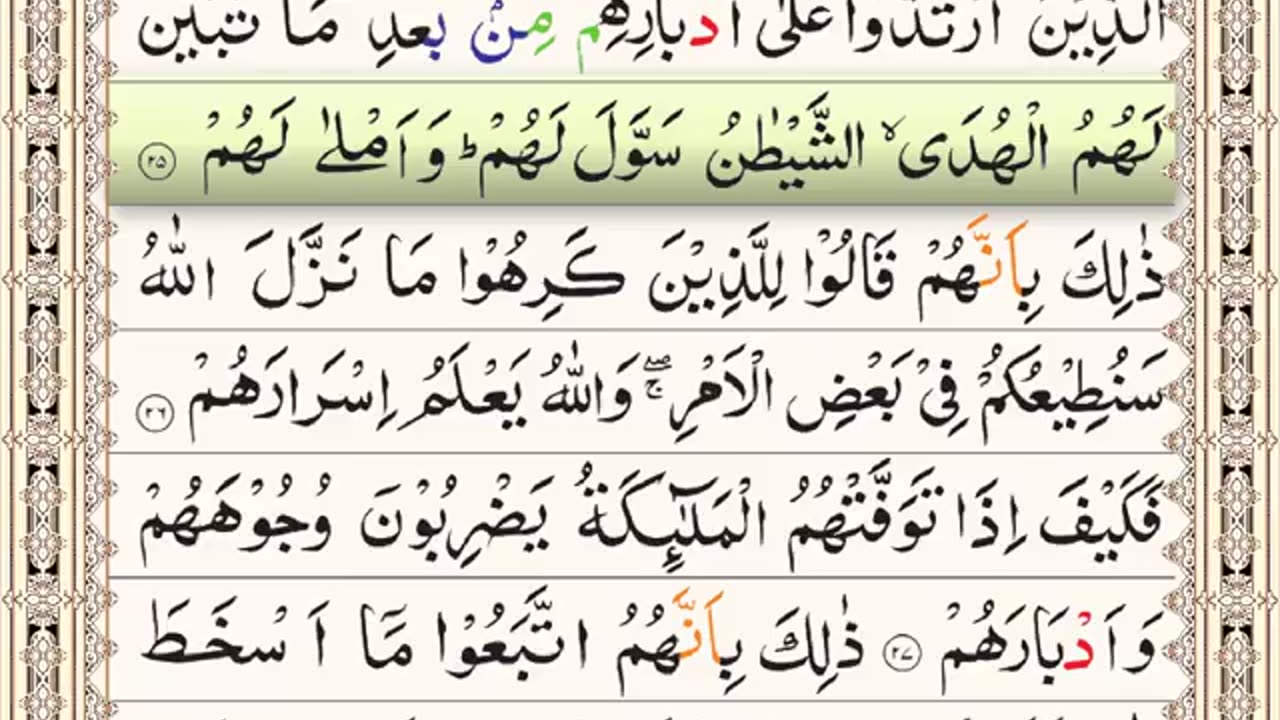 الَّذِيْنَ ارْتَدُّوْا عَلٰٓى اَدْبَارِهِمْ مِّنْۢ بَعْدِ مَا تَبَيَّنَ
لَهُمُ الْهُدَىۙ الشَّيْطٰنُ سَوَّلَ لَهُمْؕ وَاَمْلٰى لَهُمْ ۝۲۵
ذٰلِكَ بِاَنَّهُمْ قَالُوْا لِلَّذِيْنَ كَرِهُوْا مَا نَزَّلَ اللّٰهُ
سَنُطِيْعُكُمْ فِيْ بَعْضِ الْاَمْرِۖۚ وَاللّٰهُ يَعْلَمُ اِسْرَارَهُمْ ۝۲۶
فَكَيْفَ اِذَا تَوَفَّتْهُمُ الْمَلٰٓىِٕكَةُ يَضْرِبُوْنَ وُجُوْهَهُمْ
وَاَدْبَارَهُمْ ۝۲۷ ذٰلِكَ بِاَنَّهُمُ اتَّبَعُوْا مَاۤ اَسْخَطَ